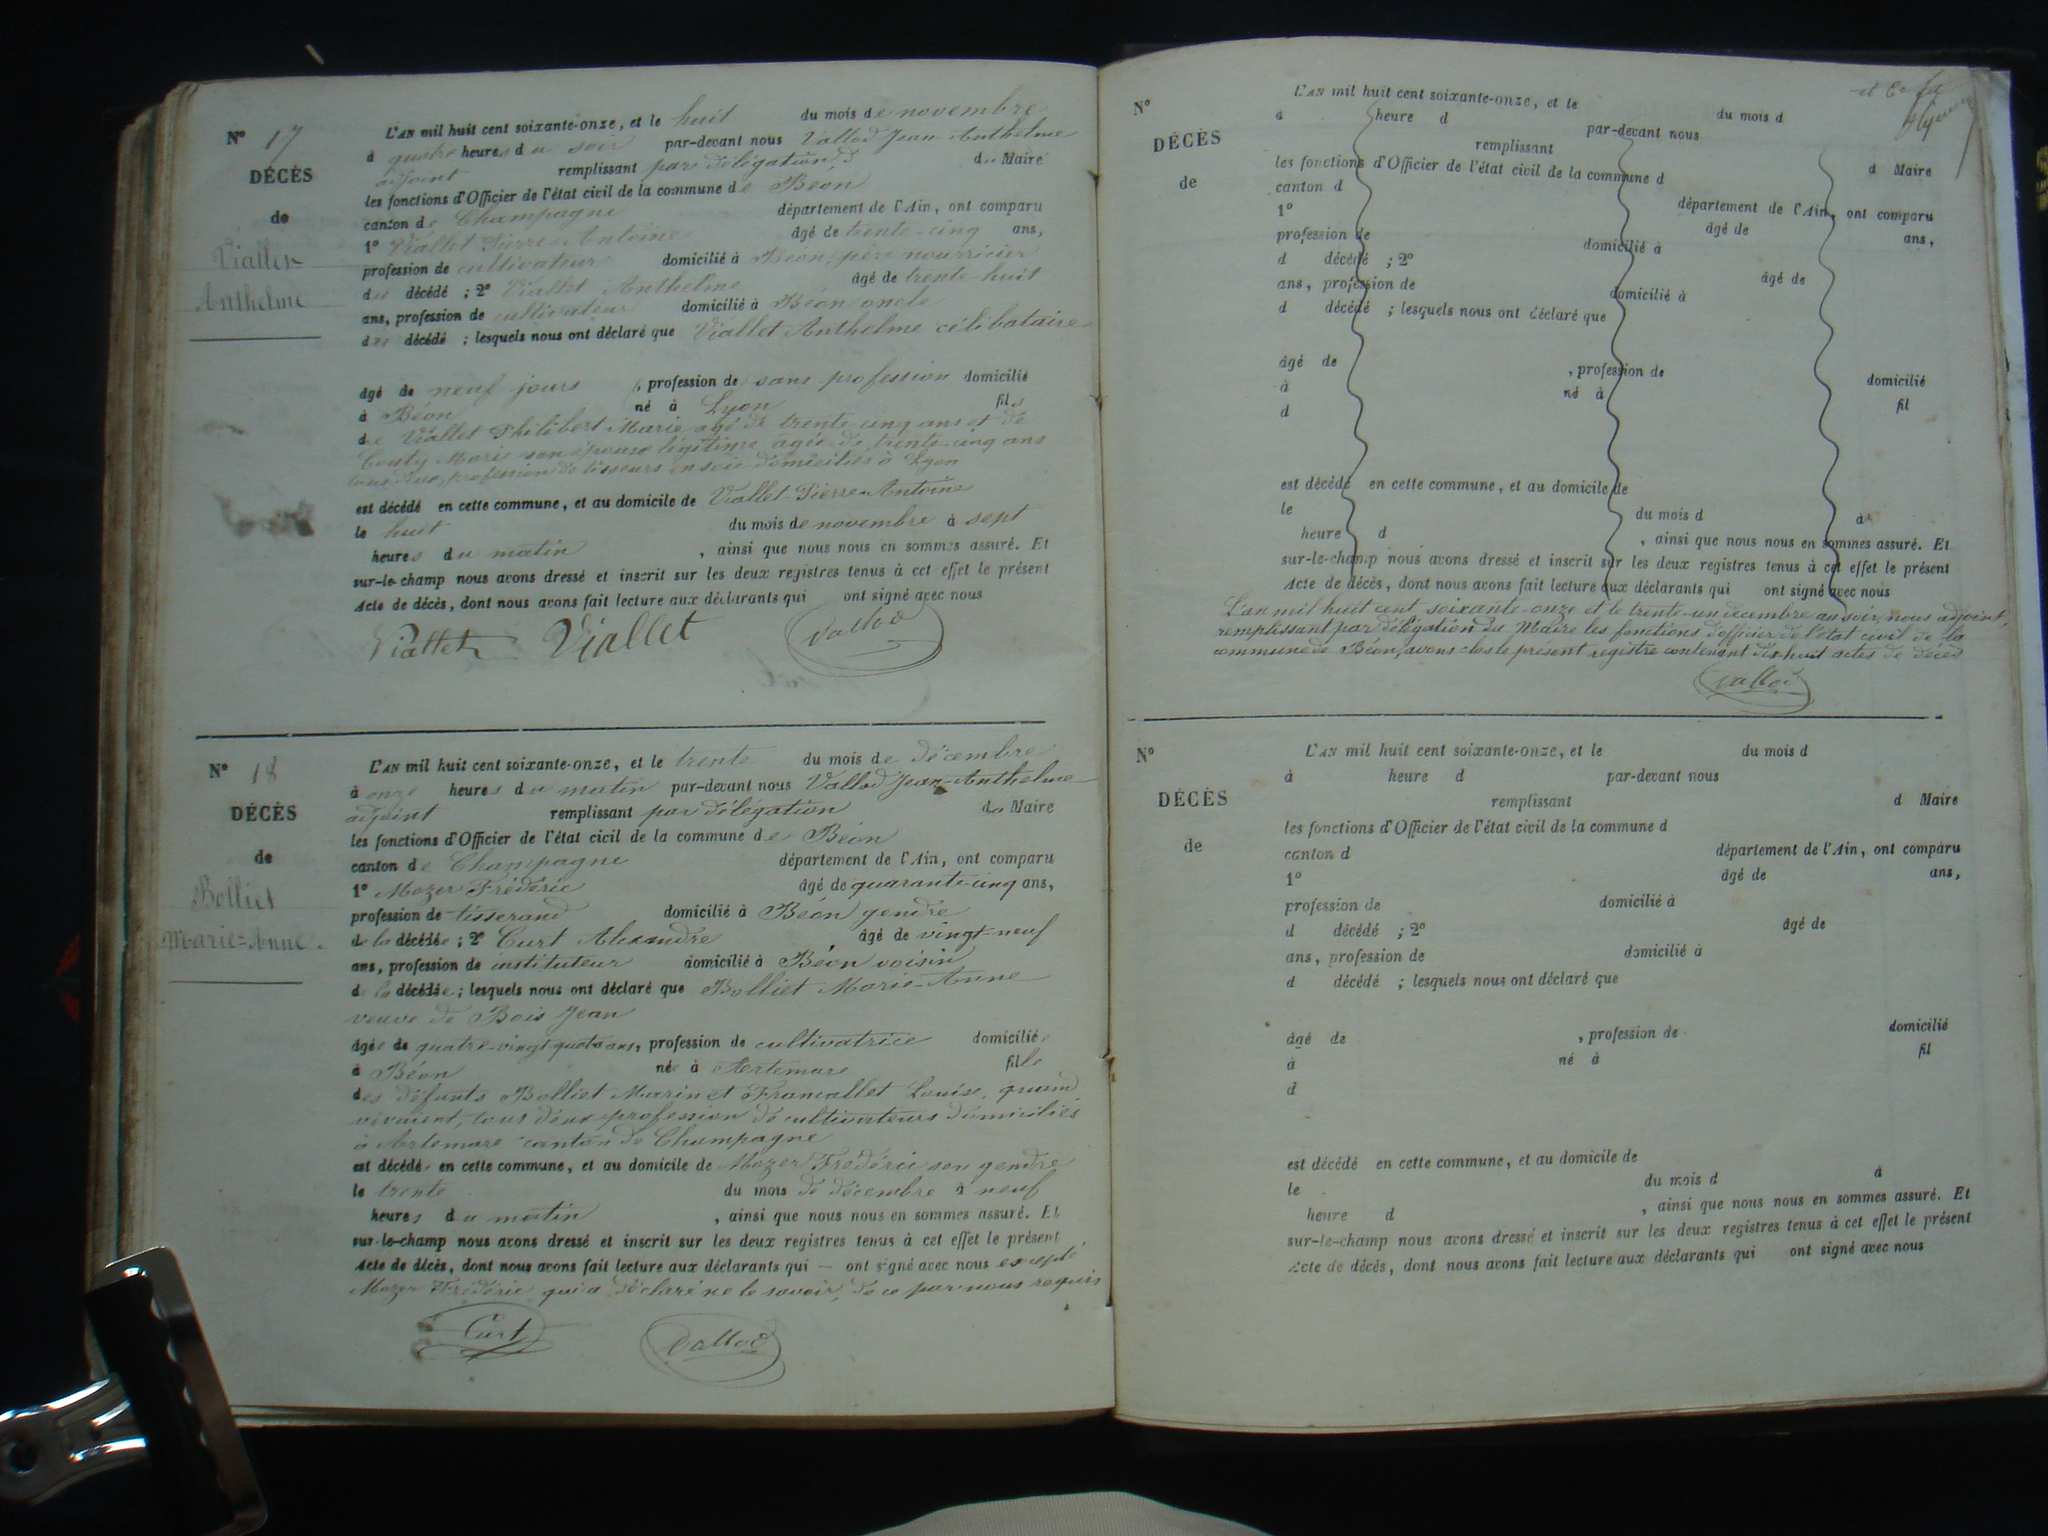 N° 17
DÉCÈS
de
Viallet
Anthelme
L'AN mil huit cent soixante-onze, et le huit du mois de novembre
à quatre heures du soir par-devant nous Vallod Jean Anthelme
adjoint remplissant par délégation du Maire
les fonctions d'Officier de l'état civil de la commune de Béon
canton de Champagne département de l'Ain, ont comparu
1° Viallet Pierre-Antoine âgé de trente-cinq ans,
profession de cultivateur domicilié à Béon, père nourricier
du décédé ; 2° Viallet Anthelme âgé de trente-huit
ans, profession de cultivateur domicilié à Béon oncle
du décédé ; lesquels nous ont déclaré que Viallet Anthelme célibataire
âgé de neuf jours, profession de sans profession domicilié
à Béon né à Lyon fils
de Viallet Philibert Marie agé de trente cinq ans et de
Couty Marie son épouse légitime agée de trente-cinq ans
tous deux profession de tisseurs en soie domiciliés à Lyon
est décédé en cette commune, et au domicile de Viallet-Pierre-Antoine
le huit du mois de novembre à sept
heures du matin, ainsi que nous nous en sommes assuré. Et
sur-le-champ nous avons dressé et inscrit sur les deux registres tenus à cet effet le présent
Acte de décès, dont nous avons fait lecture aux déclarants qui ont signé avec nous
Viallet Viallet Vallod
N° 18
DÉCÈS
de
Bolliet
Marie-Anne
L'AN mil huit cent soixante-onze, et le trente du mois de décembre
à onze heures du matin par-devant nous Vallod Jean-Anthelme
adjoint remplissant par délégation du Maire
les fonctions d'Officier de l'état civil de la commune de Béon
canton de Champagne département de l'Ain, ont comparu
1° Mozer Frédéric âgé de quarante-cinq ans,
profession de tisserand domicilié à Béon gendre
de la décédée ; 2° Curt Alexandre âgé de vingt-neuf
ans, profession de instituteur domicilié à Béon voisin
de la décédée ; lesquels nous ont déclaré que Bolliet Marie-Anne
veuve de Bois Jean
âgée de quatre-vingt quatre ans, profession de cultivatrice domiciliée
à Béon née à Artemare fille
des défunts Bolliet Marin et Francallet Louise, quand
vivaient, tous deux profession de cultivateurs domiciliés
à Artemare canton de Champagne
est décédée en cette commune, et au domicile de Mozer Frédéric son gendre
le trente du mois de décembre à neuf
heures du matin, ainsi que nous nous en sommes assuré. Et
sur-le-champ nous avons dressé et inscrit sur les deux registres tenus à cet effet le présent
Acte de décès, dont nous avons fait lecture aux déclarants qui — ont signé avec nous excepté
Mozer Frédéric qui a déclaré ne le savoir, de ce par nous requis
Curt Vallod
N°
DÉCÈS
de
L'AN mil huit cent soixante-onze, et le du mois d
à heure d par-devant nous
remplissant d Maire
les fonctions d'Officier de l'état civil de la commune d
canton d département de l'Ain, ont comparu
1° âgé de ans,
profession de domicilié à
d décédé ; 2° âgé de
ans, profession de domicilié à
d décédé ; lesquels nous ont déclaré que
âgé de , profession de domicilié
à né à fil
d
est décédé en cette commune, et au domicile de
le du mois d à
heure d , ainsi que nous nous en sommes assuré. Et
sur-le-champ nous avons dressé et inscrit sur les deux registres tenus à cet effet le présent
Acte de décès, dont nous avons fait lecture aux déclarants qui ont signé avec nous
L'an mil huit cent soixante-onze et le trente-un décembre au soir, nous adjoint,
remplissant par délégation du Maire les fonctions d'officier de l'état civil de la
commune de Béon, avons clos le présent registre contenant dix-huit actes de décès
Vallod
N°
DÉCÈS
de
L'AN mil huit cent soixante-onze, et le du mois d
à heure d par-devant nous
remplissant d Maire
les fonctions d'Officier de l'état civil de la commune d
canton d département de l'Ain, ont comparu
1° âgé de ans,
profession de domicilié à
d décédé ; 2° âgé de
ans, profession de domicilié à
d décédé ; lesquels nous ont déclaré que
âgé de , profession de domicilié
à né à fil
d
est décédé en cette commune, et au domicile de
le du mois d à
heure d , ainsi que nous nous en sommes assuré. Et
sur-le-champ nous avons dressé et inscrit sur les deux registres tenus à cet effet le présent
Acte de décès, dont nous avons fait lecture aux déclarants qui ont signé avec nous